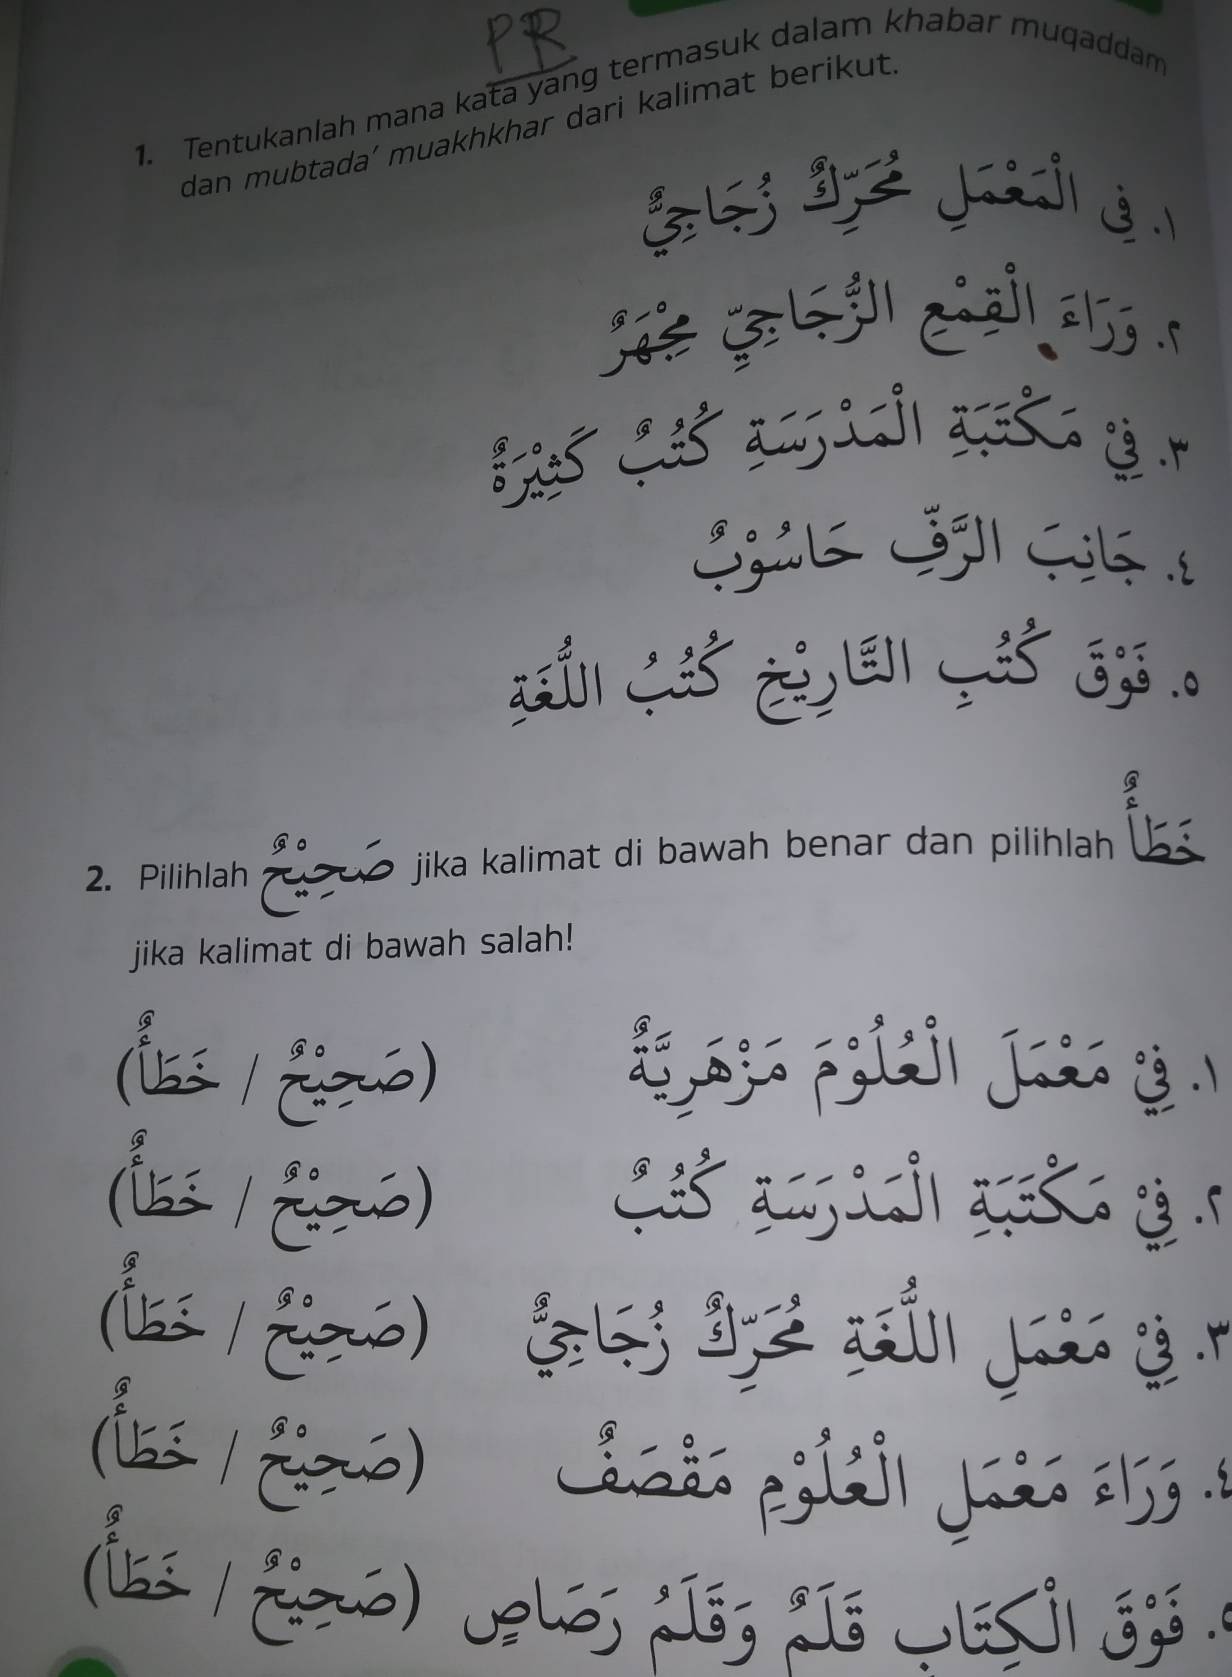 PR
1. Tentukanlah mana kata yang termasuk dalam khabar muqaddam
dan mubtada' muakhkhar dari kalimat berikut.
١. فِي الْمَعْمَلِ مُحَرِّكٌ زُجَاجِيٌّ
٢. وَرَاءَ الْقِمْعِ الزُّجَاجِيِّ مِجْهَرٌ
٣. فِيْ مَكْتَبَةِ الْمَدْرَسَةِ كُتُبٌ كَثِيْرَةٌ
٤. جَانِبَ الرَّفِّ حَاسُوْبٌ
٥. فَوْقَ كُتُبِ التَّارِيْخِ كُتُبُ اللُّغَةِ
2. Pilihlah صَحِيْحٌ jika kalimat di bawah benar dan pilihlah خَطَأٌ
jika kalimat di bawah salah!
١. فِيْ مَعْمَلَ الْعُلُوْمَ مَزْهَرِيَّةٌ (صَحِيْحٌ / خَطَأٌ)
٢. فِيْ مَكْتَبَةِ الْمَدْرَسَةِ كُتُبٌ (صَحِيْحٌ / خَطَأٌ)
٣. فِيْ مَعْمَلِ اللُّغَةِ مُحَرِّكٌ زُجَاجِيٌّ (صَحِيْحٌ / خَطَأٌ)
٤. وَرَاءَ مَعْمَلِ الْعُلُوْمِ مَقْصَفٌ (صَحِيْحٌ / خَطَأٌ)
٥. فَوْقَ الْكِتَابِ قَلَمٌ وَقَلَمُ رَصَاصٍ (صَحِيْحٌ / خَطَأٌ)